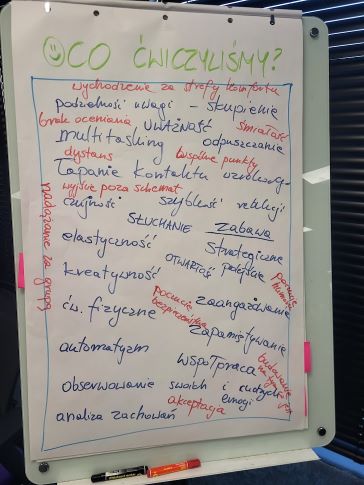 CO ĆWICZYLIŚMY?
wychodzenie za strefy komfortu
podzielność uwagi - skupienie
brak oceniania UWAŻNOŚĆ śmiałość
multitasking odpuszczanie
dystans wspólne punkty
Łapanie kontaktu wzrokowego
wyjście poza schemat
czujność szybkość reakcji
SŁUCHANIE zabawa
nadążanie za grupą
elastyczność strategiczne
OTWARTOŚĆ
kreatywność
poczucie humoru
poczucie bezpieczeństwa zaangażowanie
ćw. fizyczne
zapamiętywanie
automatyzm
WSPÓŁPRACA budowanie
obserwowanie swoich i cudzych emocji
akceptacja
analiza zachowań